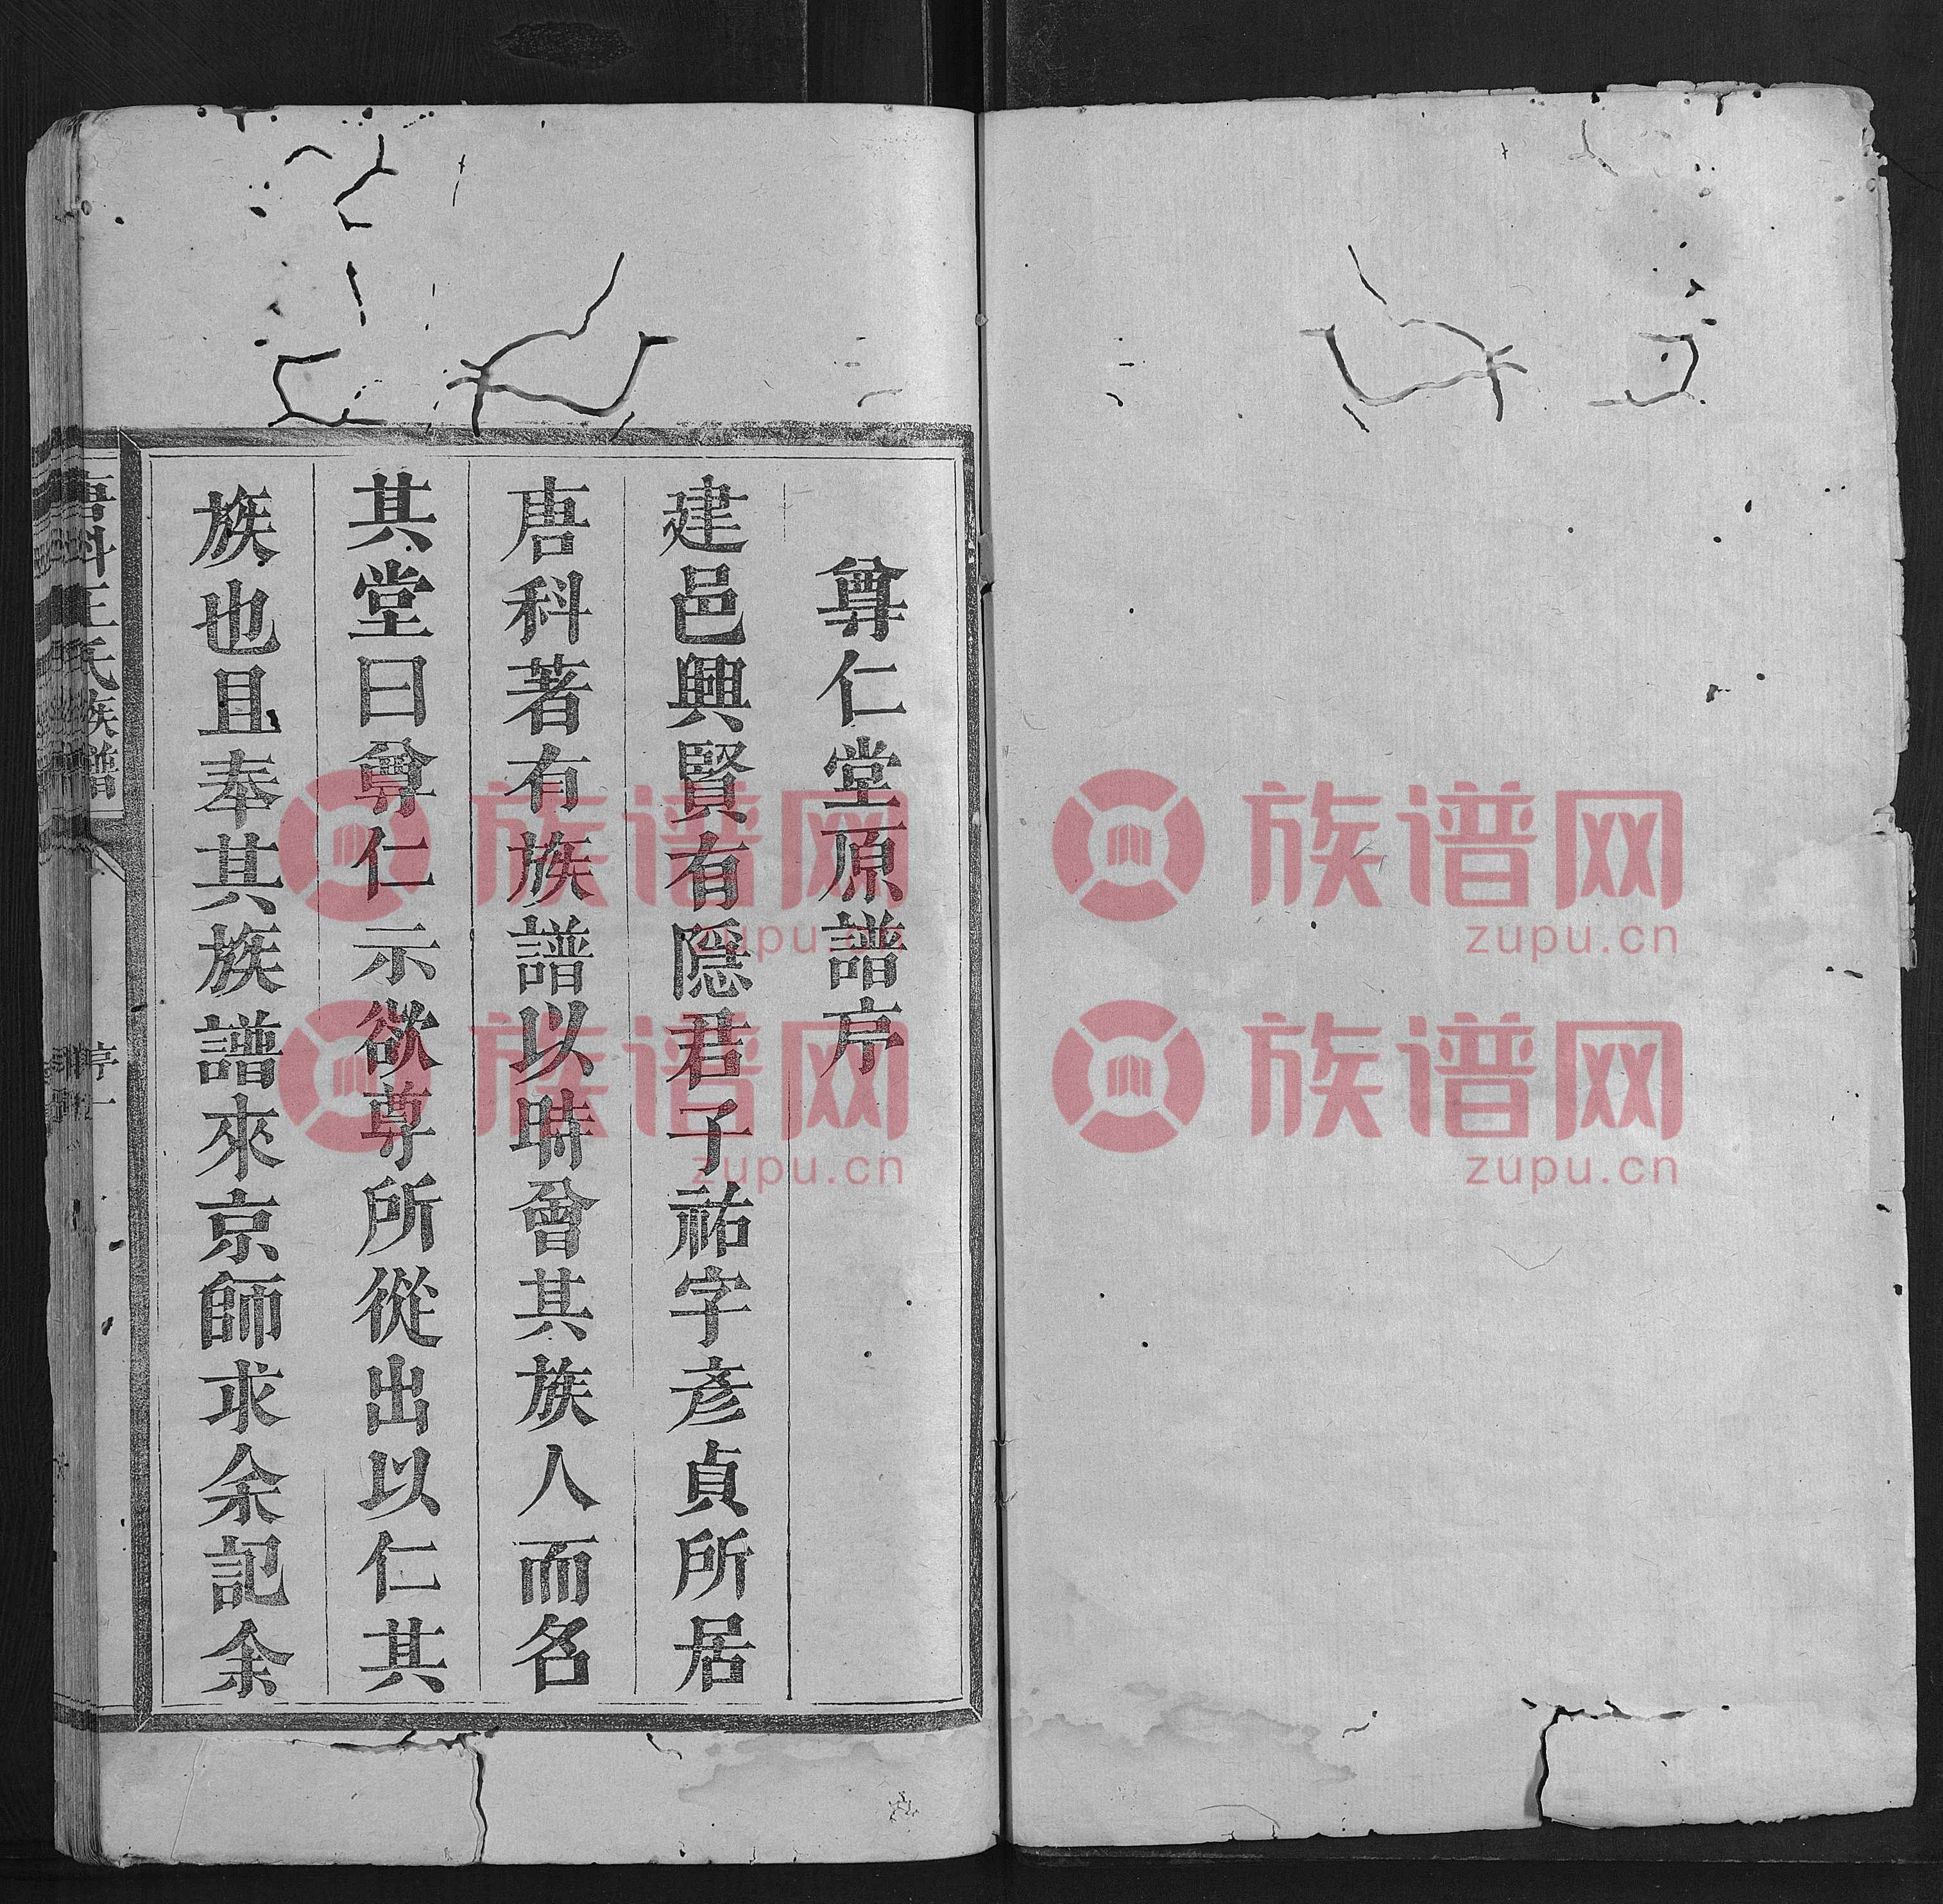 尊仁堂原譜序
建邑興賢有隱君子祐字彥貞所居
唐科著有族譜以時會其族人而名
其堂曰尊仁示欲尊所從出以仁其
族也且奉其族譜來京師求余記余
唐科王氏族譜
序
一
族谱网
zupu.cn
族谱网
zupu.cn
族谱网
zupu.cn
族谱网
zupu.cn